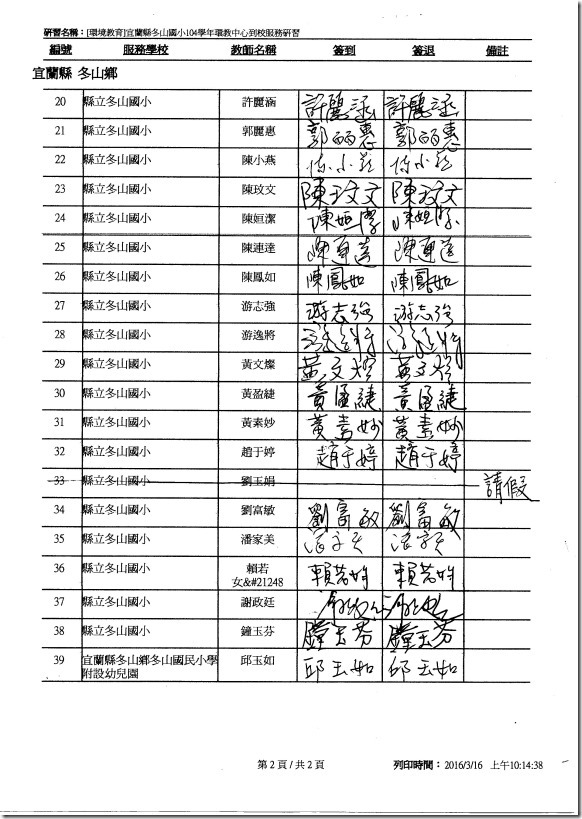 研習名稱：[環境教育]宜蘭縣冬山國小104學年環教中心到校服務研習
編號 服務學校 教師名稱 簽到 簽退 備註
宜蘭縣 冬山鄉
20 縣立冬山國小 許麗涵 許麗涵 許麗涵
21 縣立冬山國小 郭麗惠 郭麗惠 郭麗惠
22 縣立冬山國小 陳小燕 陳小燕 陳小燕
23 縣立冬山國小 陳玟文 陳玟文 陳玟文
24 縣立冬山國小 陳姮潔 陳姮潔 陳姮潔
25 縣立冬山國小 陳連達 陳連達 陳連達
26 縣立冬山國小 陳鳳如 陳鳳如 陳鳳如
27 縣立冬山國小 游志強 游志強 游志強
28 縣立冬山國小 游逸將 游逸將 游逸將
29 縣立冬山國小 黃文燦 黃文燦 黃文燦
30 縣立冬山國小 黃盈緁 黃盈緁 黃盈緁
31 縣立冬山國小 黃素妙 黃素妙 黃素妙
32 縣立冬山國小 趙于婷 趙于婷 趙于婷
33 縣立冬山國小 劉玉娟 請假
34 縣立冬山國小 劉富敏 劉富敏 劉富敏
35 縣立冬山國小 潘家美
36 縣立冬山國小 賴若 賴若 賴若
女&#21248
37 縣立冬山國小 謝政廷
38 縣立冬山國小 鐘玉芬 鐘玉芬 鐘玉芬
39 宜蘭縣冬山鄉冬山國民小學 邱玉如 邱玉如 邱玉如
附設幼兒園
第 2 頁 / 共 2 頁 列印時間：2016/3/16 上午10:14:38